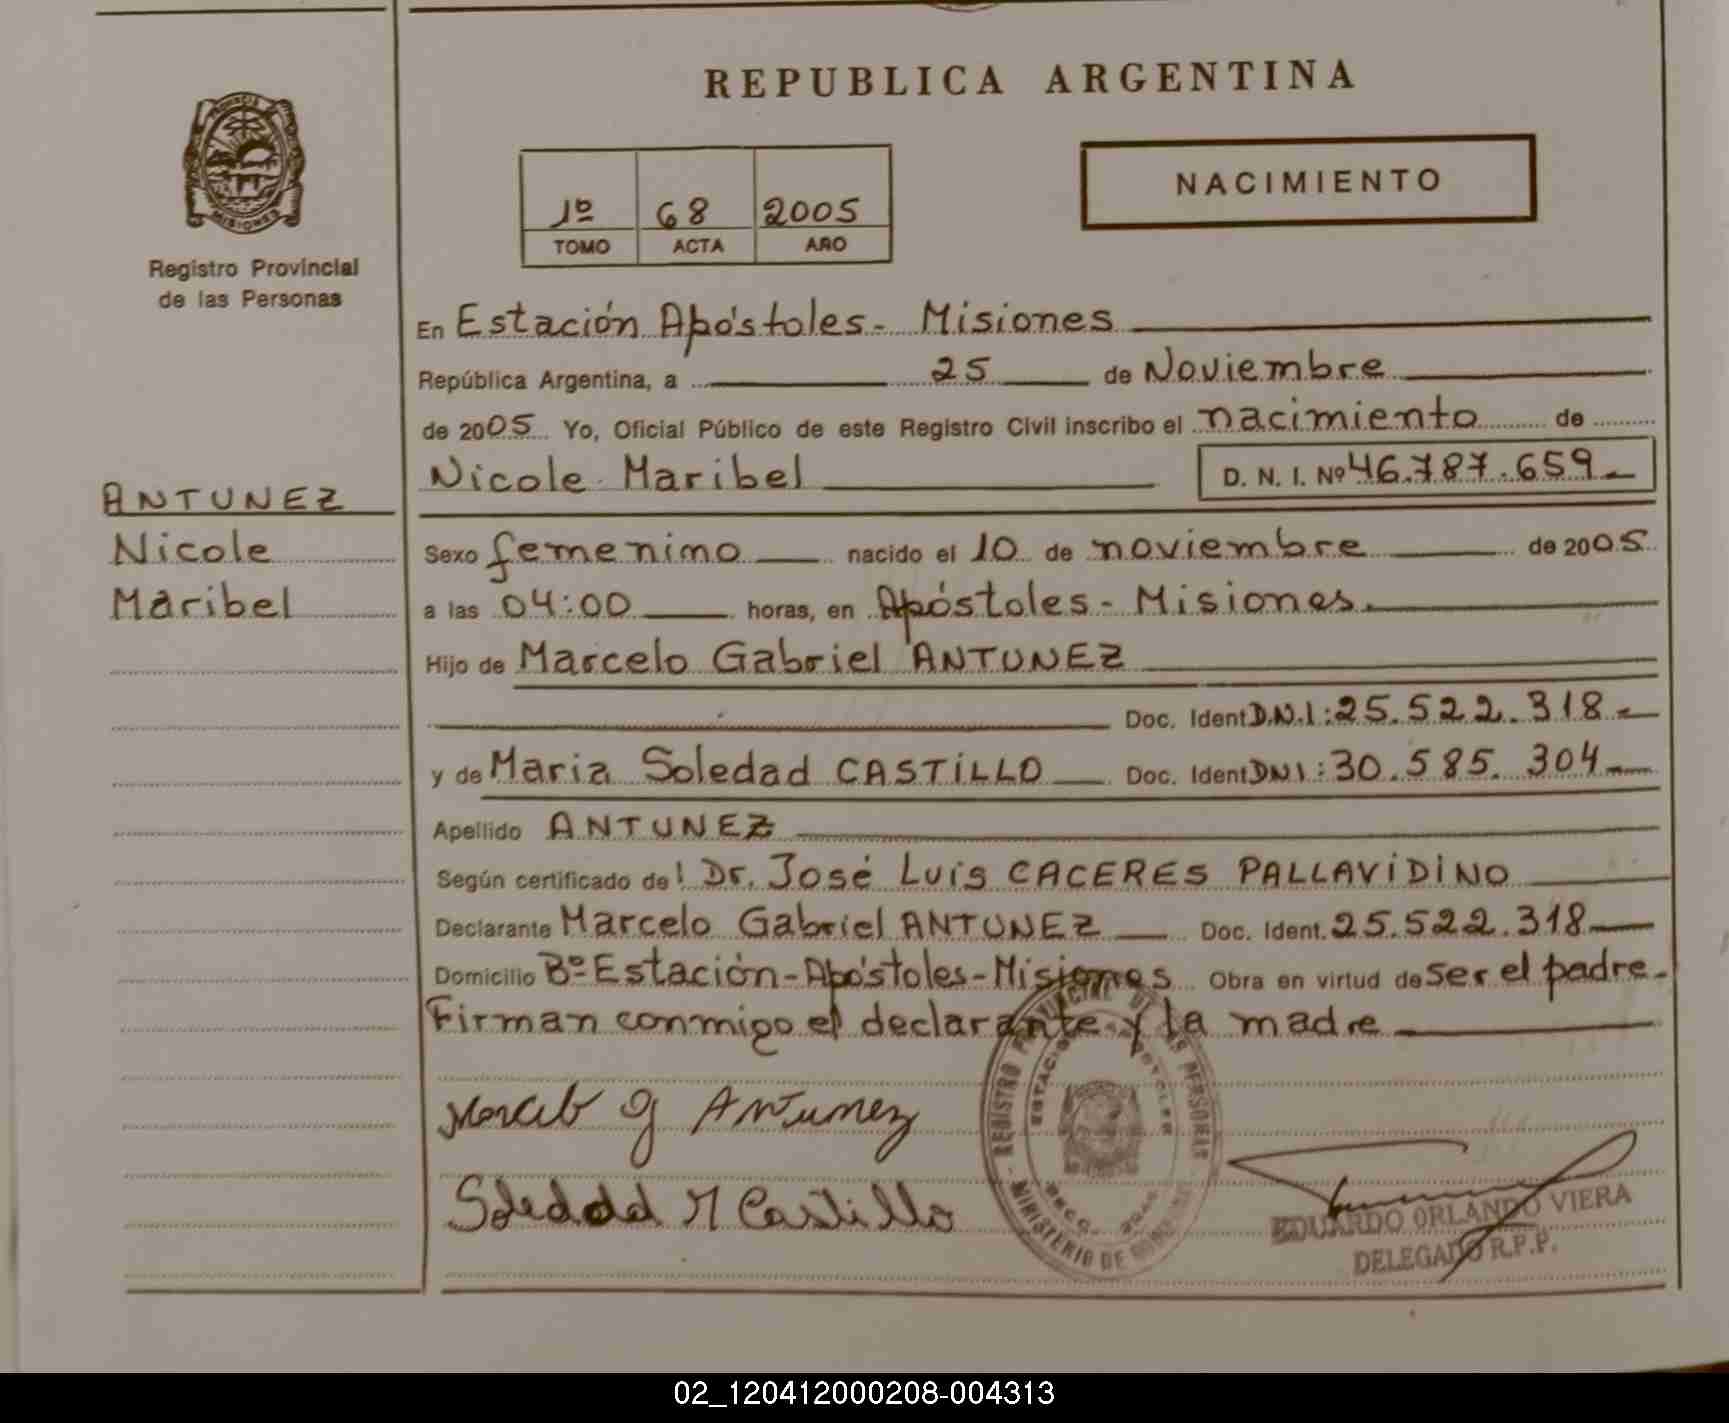 REPUBLICA ARGENTINA
PROVINCIA
MISIONES
Registro Provincial
de las Personas
1º 68 2005
TOMO ACTA AÑO
NACIMIENTO
En Estación Apóstoles - Misiones
República Argentina, a 25 de Noviembre
de 2005 Yo, Oficial Público de este Registro Civil inscribo el nacimiento de
Nicole Maribel D. N. I. Nº 46.787.659
ANTUNEZ
Nicole
Maribel
Sexo femenino nacido el 10 de noviembre de 2005
a las 04:00 horas, en Apóstoles - Misiones.
Hijo de Marcelo Gabriel ANTUNEZ
Doc. Ident D.N.I: 25.522.318
y de Maria Soledad CASTiLLO Doc. Ident DNI: 30.585.304
Apellido ANTUNEZ
Según certificado de: Dr. José Luis CACERES PALLAViDiNO
Declarante Marcelo Gabriel ANTUNEZ Doc. Ident. 25.522.318
Domicilio Bº Estación - Apóstoles - Misiones Obra en virtud de ser el padre.
Firman conmigo el declarante y la madre
Marcelo G Antunez
Soledad M Castillo
REGISTRO PROVINCIAL DE LAS PERSONAS
MINISTERIO DE GOBIERNO
EDUARDO ORLANDO VIERA
DELEGADO R.P.P.
02_120412000208-004313